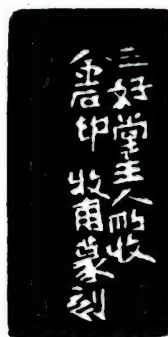 三好堂主人所收
金石印 牧甫篆刻